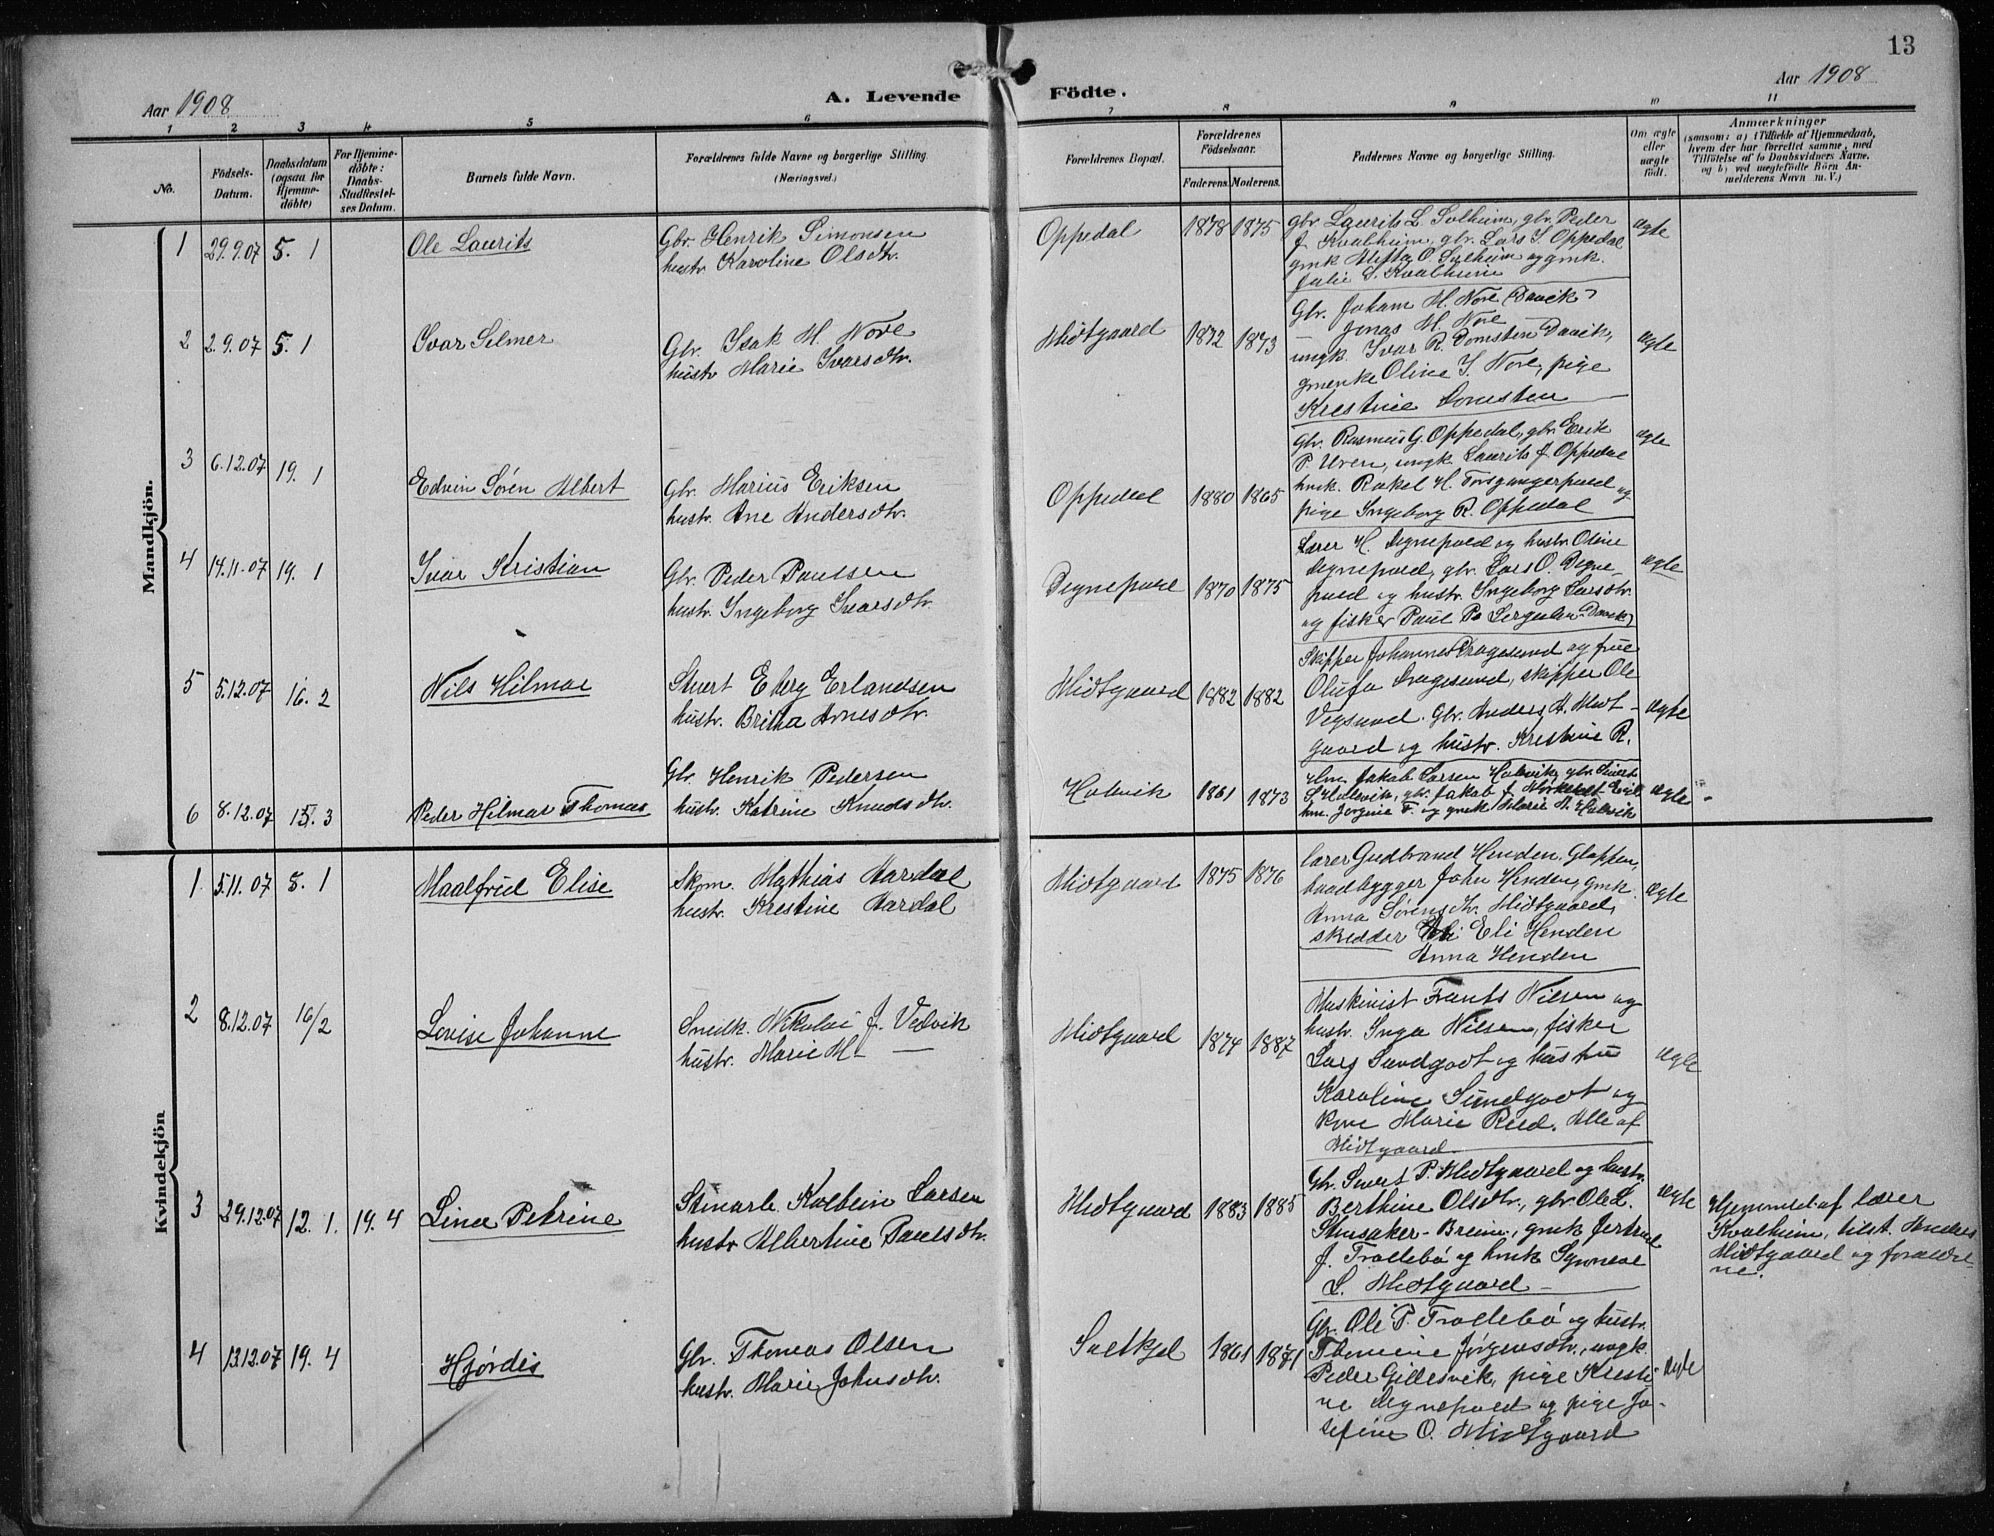 13
Aar 1908
A. Levende Födte.
Aar 1908
1 2 3 4 5 6 7 8 9 10 11
No.
Födsels-
Datum.
Daabsdatum
(ogsaa for
Hjemme-
döbte)
For Hjemme-
döbte:
Daabs-
Stadfæstel-
ses Datum.
Barnets fulde Navn.
Forældrenes fulde Navne og borgerlige Stilling
(Næringsvei.)
Forældrenes Bopæl.
Forældrenes
Födselsaar.
Faderens. Moderens.
Faddernes Navne og borgerlige Stilling.
Om ægte
eller
uægte
födt.
Anmærkninger
(saasom: a) i Tilfælde af Hjemmedaab,
hvem der har forrettet samme, med
Tilföielse af to Daabsvidners Navne,
og b) ved uægtefödte Börn An-
melderens Navn m. V.)
Mandkjön.
1 29.9.07 5. 1 Ole Laurits
Gbr. Henrik Simonsen
hustr. Karoline Olsdtr.
Oppedal 1878 1875
gbr. Laurits L. Solheim, gbr. Peder
J. Kvalheim, gbr. Lars I. Oppedal
gmk O. Solheim og gmk.
Julie S. Kvalheim
ægte
2 2.9.07 5. 1 Ivar Selmer
Gbr. Isak M. Nore
hustr Marie Ivarsdtr.
Midtgaard 1872 1873
Gbr. Johan M. Nore (Davik)
Jonas M. Nore
ungk. Ivar R. Domsten Davik,
gmenke Oline I. Nore, pige
Krestine Domsten
ægte
3 6.12.07 19. 1 Edvin Sørén Albert
Gbr. Marius Eriksen
hustr. Ane Andersdtr.
Oppedal 1880 1865
Gbr. Rasmus G. Oppedal, gbr. Erik
P. Uren, ungk. Laurits J. Oppedal
hmk. Rakel H. og
pige Ingeborg R. Oppedal
ægte
4 14.11.07 19. 1 Ivar Kristian
Gbr. Peder Paulsen
hustr. Ingeborg Ivarsdtr.
Degnepold 1870 1875
Lærer H. Degnepold og hustr. Oline
Degnepold, gbr. Lars O. Degne-
pold og hustr. Ingeborg Larsdtr.
og fisker Paul P. (Davik)
ægte
5 5.12.07 16. 2 Nils Hilmar
Stuert Eberg Erlandsen
hustr. Britha Arnesdtr.
Midtgaard 1882 1882
Skipper Johannes Dragesund og frue
Olufa Dragesund, skipper Ole
Vegsund. Gbr. Anders A. Midt-
gaard og hustr. Krestine R.
ægte
6 8.12.07 15. 3 Peder Hilmar Thomas
Gbr Henrik Pedersen
hustr. Katrine Knudsdtr.
Holvik 1861 1873
Jakob Larsen Holvik, gbr. Sivert
S. Holvik, gbr. Jakob J.
hm. Jorgine F. og gmk Marie A. Holvik
ægte
Kvindekjön
1 5.11.07 5. 1 Maalfrid Elise
Skom. Mathias Aardal
hustr. Krestine Aardal
Midtgaard 1875 1876
lærer Gudbrand Henden, Gloppen,
baadbygger John Henden, gmk.
Anna Sørensdtr. Midtgaard,
skrædder Eli Henden
Anna Henden
ægte
2 8.12.07 16/2 Lovise Johanne
Snedk. Nikolai J. Vedvik
hustr. Marie M. —
Midtgaard 1874 1887
Maskinist Frants Nilsen og
hustr. Inga Nilsen, fisker
Lars Sundgodt og hustru
Karoline Sundgodt og
kone Marie Reed. Alle af
Midtgaard.
ægte
3 29.12.07 12. 1. 19. 4 Lina Petrine
Stenarb. Kolbein Larsen
hustr Albertine Paulsdtr.
Midtgaard 1883 1885
Gbr. Sivert P. Midtgaard og hustr.
Berthine Olsdtr., gbr. Ole L.
Stusaker - Breim, gmk Jertrud
J. Trollebø og hmk Synneve
L. Midtgaard
ægte
Hjemmed. af lærer
Kvalheim, tilst. Anders
Midtgaard og foræld-
ne.
4 13.12.07 19. 4 Hjørdis
Gbr. Thomas Olsen
hustr. Marie Johnsdtr.
1861 1871
Gbr. Ole P. Trollebø og hustr.
Thomine Jørgensdtr., ungk.
Peder Gillesvik, pige Kresti-
ne Degnepold og pige Jo-
sefine O. Midtgaard
ægte